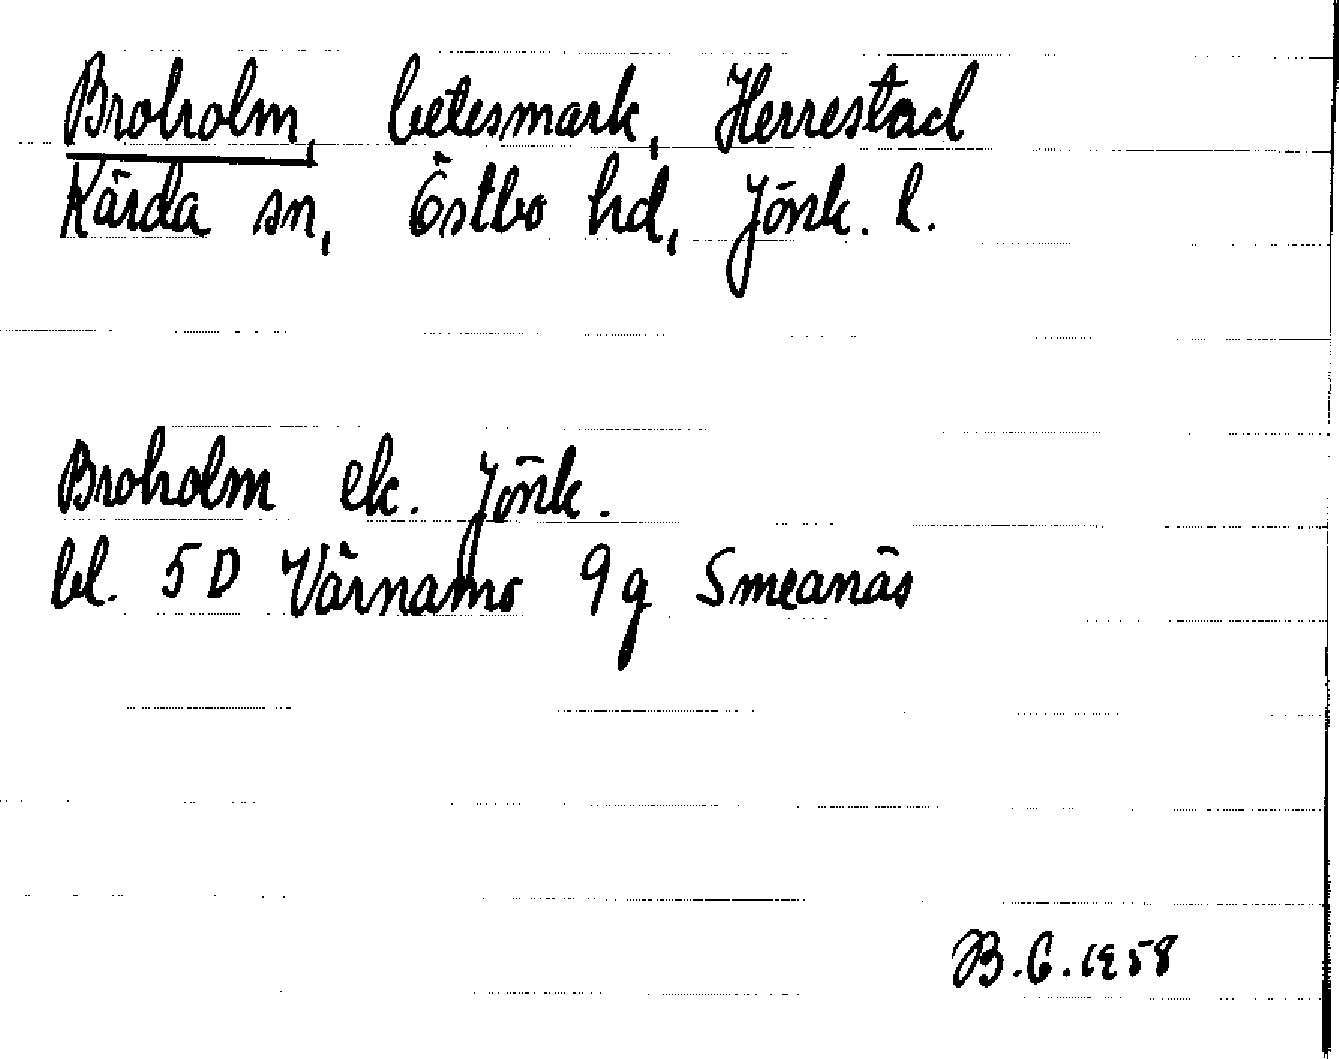 Broholm, betesmark, Herrestad
Kärda sn, Östbo hd, Jönk. l.
Broholm ek. Jönk.
bl. 5 D Värnamo 9 g Smeanäs
B.E. 1958